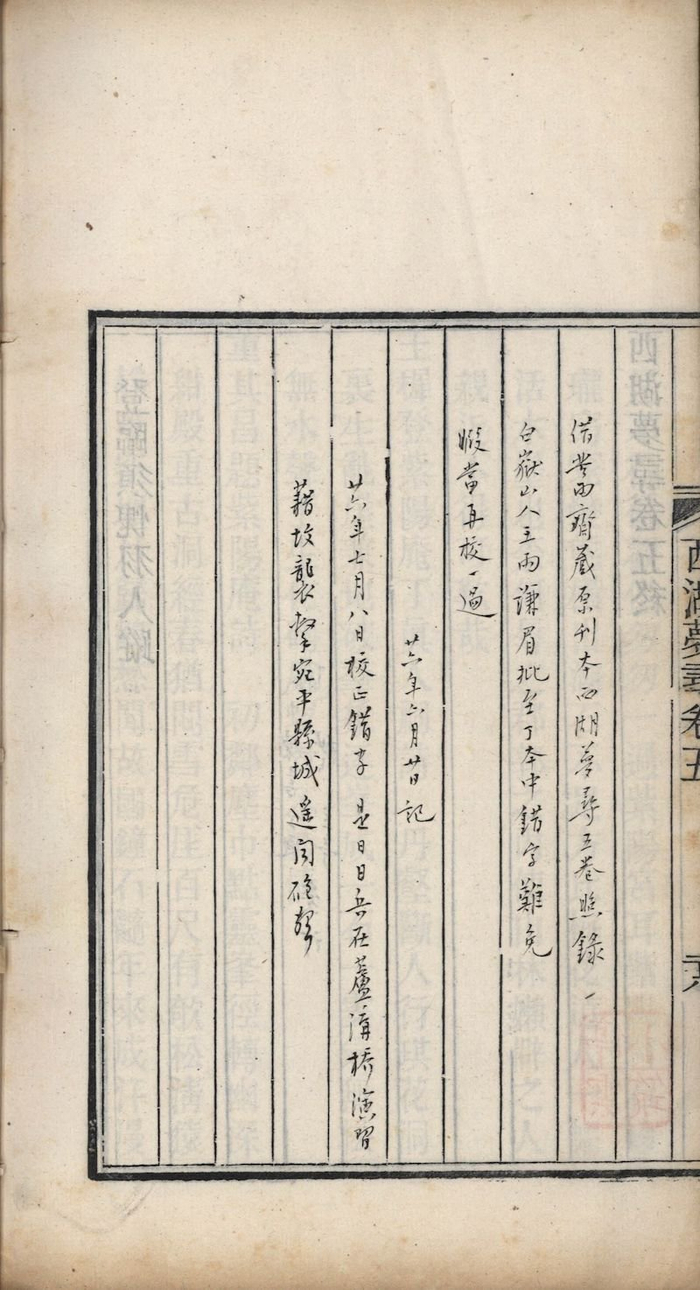 西湖夢尋卷五
借苦雨齋藏原刊本西湖夢尋五卷照錄一
白嶽山人王雨謙眉批至丁本中錯字難免
暇當再校一過
廿六年六月廿日記
廿六年七月八日校正錯字 是日日兵在蘆溝橋演習
藉故襲擊宛平縣城遥闻砲聲